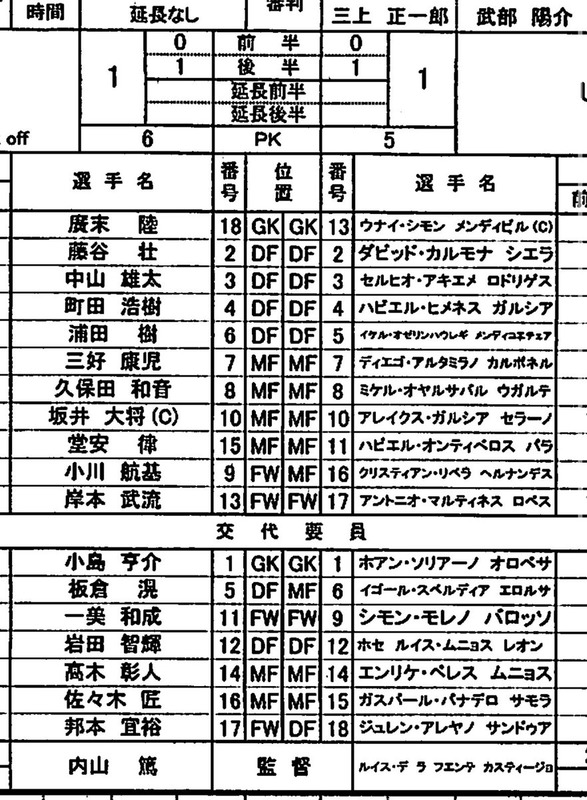 時間 延長なし 審判 三上 正一郎 武部 陽介
0 前半 0
1 1 後半 1 1
延長前半
延長後半
off 6 PK 5
選手名 番号 位置 番号 選手名
廣末 陸 18 GK GK 13 ウナイ・シモン メンディビル(C)
藤谷 壮 2 DF DF 2 ダビッド・カルモナ シエラ
中山 雄太 3 DF DF 3 セルヒオ・アキエメ ロドリゲス
町田 浩樹 4 DF DF 4 ハビエル・ヒメネス ガルシア
浦田 樹 6 DF DF 5 イケル・オゼリンハウレギ メンディコエチェア
三好 康児 7 MF MF 7 ディエゴ・アルタミラノ カルボネル
久保田 和音 8 MF MF 8 ミケル・オヤルサバル ウガルテ
坂井 大将(C) 10 MF MF 10 アレイクス・ガルシア セラーノ
堂安 律 15 MF MF 11 ハビエル・オンティベロス パラ
小川 航基 9 FW MF 16 クリスティアン・リベラ ヘルナンデス
岸本 武流 13 FW FW 17 アントニオ・マルティネス ロペス
交代要員
小島 亨介 1 GK GK 1 ホアン・ソリアーノ オロペサ
板倉 滉 5 DF MF 6 イゴール・スベルディア エロルサ
一美 和成 11 FW FW 9 シモン・モレノ バロッソ
岩田 智輝 12 DF DF 12 ホセ ルイス・ムニョス レオン
高木 彰人 14 MF MF 14 エンリケ・ペレス ムニョス
佐々木 匠 16 MF MF 15 ガスパール・パナデロ サモラ
邦本 宜裕 17 FW DF 18 ジュレン・アレヤノ サンドゥア
内山 篤 監督 ルイス・デ ラ フエンテ カスティージョ